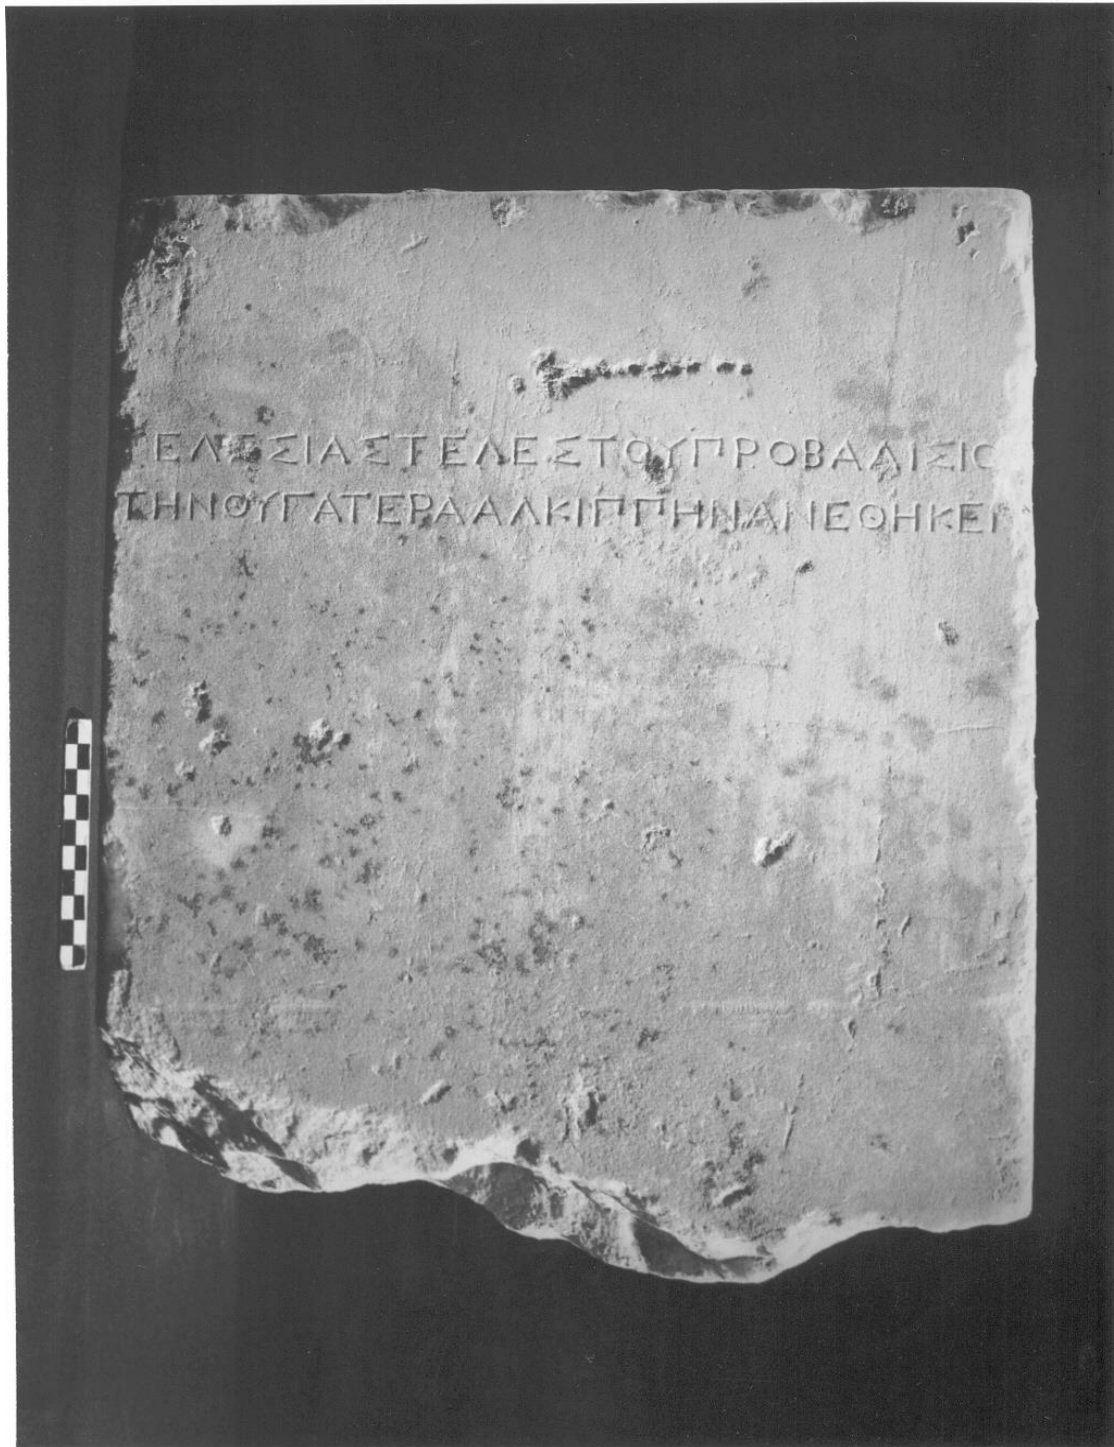 ΤΕΛΕΣΙΑΣΤΕΛΕΣΤΟΥΠΡΟΒΑΛΙΣΙΟ
ΤΗΝΘΥΓΑΤΕΡΑΑΛΚΙΠΠΗΝΑΝΕΘΗΚΕΝ